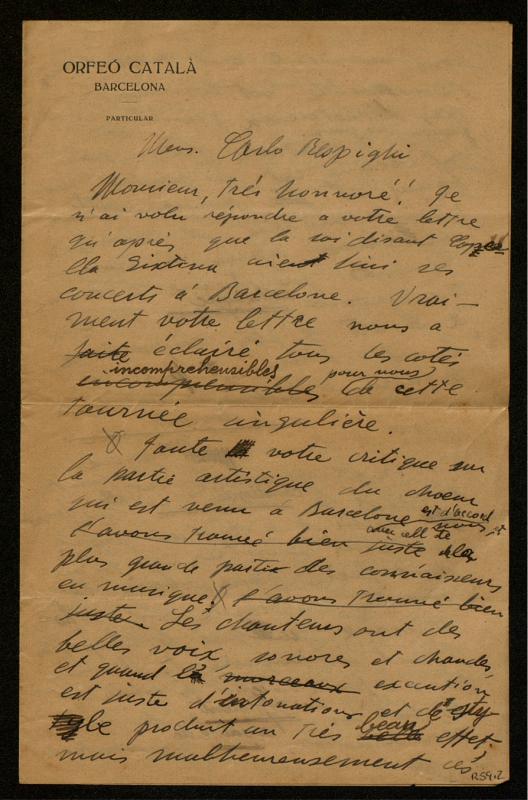 ORFEÓ CATALÀ
BARCELONA
PARTICULAR
Mons. Carlo Respighi
Monsieur, très honnoré! Je
n'ai volu répondre a votre lettre
qu'après que la soi disant Cape-
lla Sixtina aient fini ses
concerts à Barcelone. Vrai-
ment votre lettre nous a
faite éclairé tous les cotés
incomprehensibles pour nous
incomprensibles de cette
tournée singulière.
Toute votre critique sur
la partie artistique du choeur
qui est venu a Barcelone est d'accord
avec celle de nous, et
l'avons trouvé bien juste de la
plus grande partie des connaisseurs
en musique. l'avons trouvé bien
juste. Les chanteurs ont des
belles voix, sonores et chaudes,
et quand la morceaux execution
est juste d'intonation et de sty
le produit un très beau belle effet;
mais malheureusement ces
R59.2